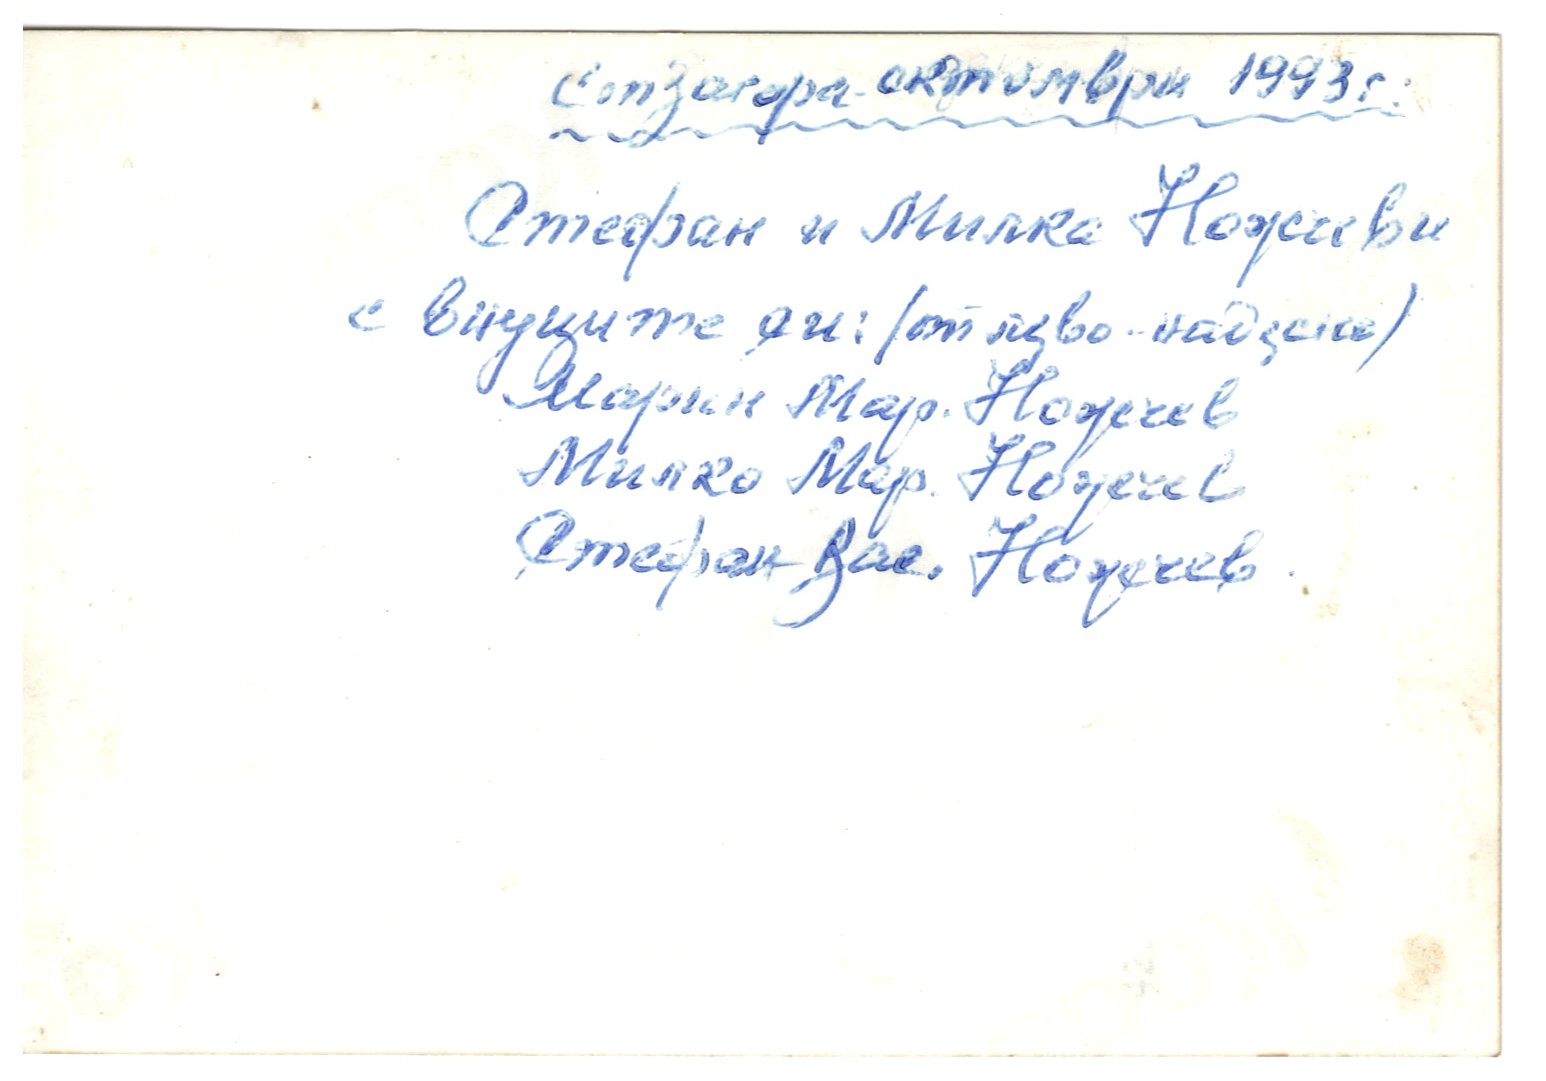 Ст Загора - октомври 1993 г.
Стефан и Милка Ножчеви
с внуците си: (от ляво - надясно)
Марин Мар. Ножчев
Милко Мар. Ножчев
Стефан Вас. Ножчев.